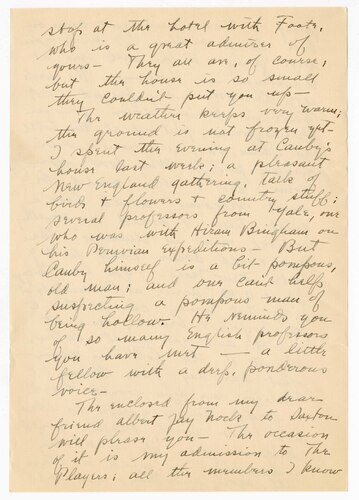 stop at the hotel with Foote,
who is a great admirer of
yours — They all are, of course,
but the house is so small
they couldn't put you up —
The weather keeps very warm;
the ground is not frozen yet —
I spent the evening at Canby's
house last week; a pleasant
New England gathering, talk of
birds & flowers & country stuff;
several professors from Yale, one
who was with Hiram Bingham on
his Peruvian expeditions — But
Canby himself is a bit pompous,
old man; and one can't help
suspecting a pompous man of
being hollow. He reminds you
of so many English professors
you have met — a little
fellow with a deep, ponderous
voice —
The enclosed from my dear
friend Albert Jay Nock to Saxton
will please you — The occasion
of it is my admission to The
Players; all the members I know